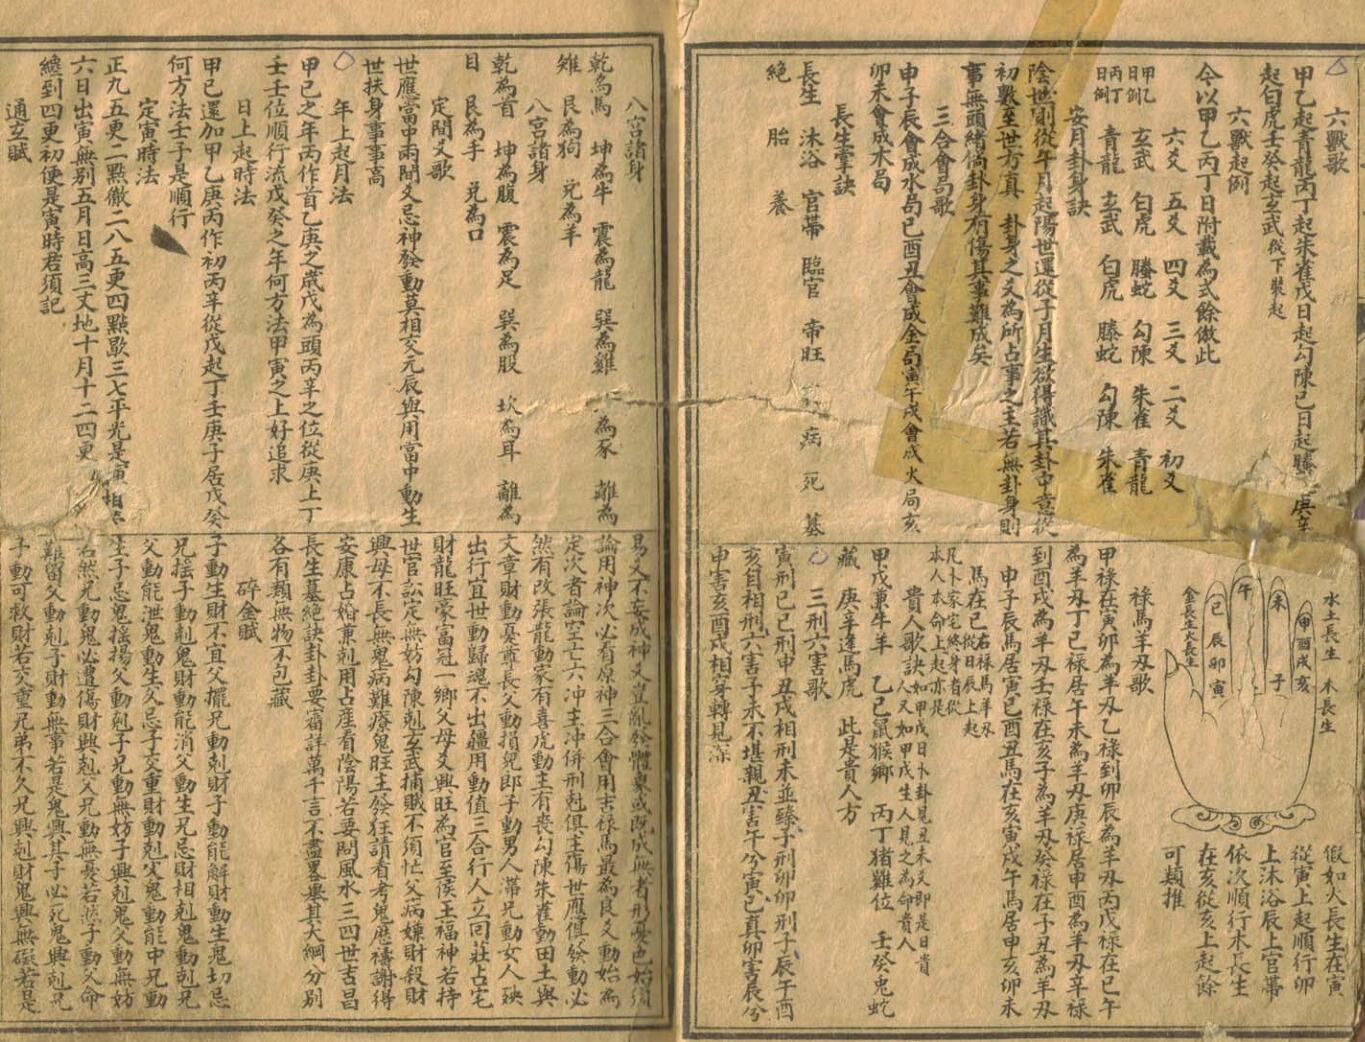 六獸歌
甲乙起青龍丙丁起朱雀戊日起勾陳己日起螣 庚辛
起白虎壬癸起玄武從下裝起
六獸起例
今以甲乙丙丁日附載為式餘倣此
六爻 五爻 四爻 三爻 二爻 初爻
甲乙日例 玄武 白虎 螣蛇 勾陳 朱雀 青龍
丙丁日例 青龍 玄武 白虎 螣蛇 勾陳 朱雀
安月卦身訣
陰世則從午月起陽世還從子月生欲得識其卦中意從
初數至世方真 卦身之爻為所占事之主若無卦身則
事無頭緒倘卦身有傷其事難成矣
三合會局歌
申子辰會成水局巳酉丑會成金局寅午戌會成火局亥
卯未會成木局
長生掌訣
長生 沐浴 官帶 臨官 帝旺 病 死 墓
絕 胎 養
水土長生 木長生
甲酉戌亥
未 子
午
巳 辰 卯 寅
金長生火長生
假如火長生在寅
從寅上起順行卯
上沐浴辰上官帶
依次順行木長生
在亥從亥上起餘
可類推
祿馬羊刃歌
甲祿在寅卯為羊刃乙祿到卯辰為羊刃丙戊祿在巳午
為羊刃丁己祿居午未為羊刃庚祿居申酉為羊刃辛祿
到酉戌為羊刃壬祿在亥子為羊刃癸祿在子丑為羊刃
申子辰馬居寅巳酉丑馬在亥寅戌午馬居申亥卯未
馬在巳右祿馬羊刃從日辰上起
凡卜家宅終身者從本人本命上起亦是
貴人歌訣如甲戊日卜卦見丑未爻即是日貴人又如甲戊生人見之為命貴人
甲戊兼牛羊 乙己鼠猴鄉 丙丁猪雞位 壬癸兔蛇
藏 庚辛逢馬虎 此是貴人方
三刑六害歌
寅刑巳巳刑申丑戌相刑未並臻子刑卯卯刑子辰午酉
亥自相刑六害子未不堪親丑害午兮寅巳真卯害辰兮
申害亥酉戌相穿轉見深
八宮諸身
乾為馬 坤為牛 震為龍 巽為雞 為豕 離為
雉 艮為狗 兌為羊
八宮諸身
乾為首 坤為腹 震為足 巽為股 坎為耳 離為
目 艮為手 兌為口
定間爻歌
世應當中兩間爻忌神發動莫相交元辰與用當中動生
世扶身事事高
年上起月法
甲己之年丙作首乙庚之歲戊為頭丙辛之位從庚上丁
壬壬位順行流戊癸之年何方法甲寅之上好追求
日上起時法
甲己還加甲乙庚丙作初丙辛從戊起丁壬庚子居戊癸
何方法壬子是順行
定寅時法
正九五更二點徹二八五更四點歇三七平光是寅
六日出寅無別五月日高三丈地十月十二四更
纔到四更初便是寅時君須記
通玄賦
易爻不妄成神爻豈亂發體象或既成無者形憂色始須
論用神次必看原神三合會用吉祿馬最為良爻動始為
定次者論空亡六冲主冲併刑剋俱主傷世應俱發動必
然有改張龍動家有喜虎動主有喪勾陳朱雀動田土與
文章財動憂尊長父動損兒郎子動男人滯兄動女人殃
出行宜世動歸魂不出疆用動值三合行人立回莊占宅
財龍旺豪富冠一鄉父母爻興旺為官至侯王福神若持
世官訟定無妨勾陳剋玄武捕賊不須忙父病嫌財殺財
興母不長無鬼病難療鬼旺主發狂請看考鬼應禱謝得
安康占婚兼剋用占產看陰陽若要問風水三四世吉昌
長生墓絕訣卦卦要審詳萬千言不盡畧舉其大綱分別
各有類無物不包藏
碎金賦
子動生財不宜父擺兄動剋財子動能解財動生鬼切忌
兄搖子動剋鬼財動能消父動生兄忌財相剋鬼動剋兄
父動能泄鬼動生父忌子交重財動剋父鬼動能中兄動
生子忌鬼搖揚父動剋子兄動無妨子興剋鬼父動無妨
若然兄動鬼必遭傷財興剋父兄動無憂若然子動父命
難留父動剋子財動無事若是鬼興其子必死鬼興剋兄
子動可救財若交重兄弟不久兄興剋財鬼興無礙若是